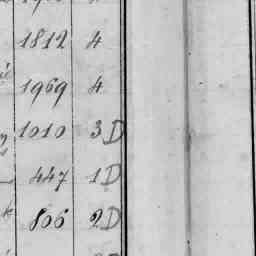 1812 4
1969 4
1010 3D
447 1D
806 2D